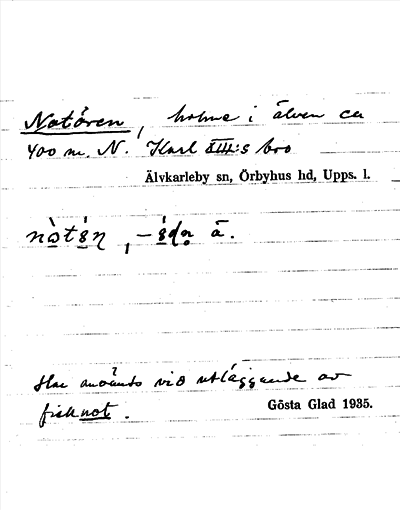 Notören, holme i älven ca
400 m. N. Karl XIII:s bro
Älvkarleby sn, Örbyhus hd, Upps. l.
Har använts vid utläggande av
fisknot.
Gösta Glad 1935.